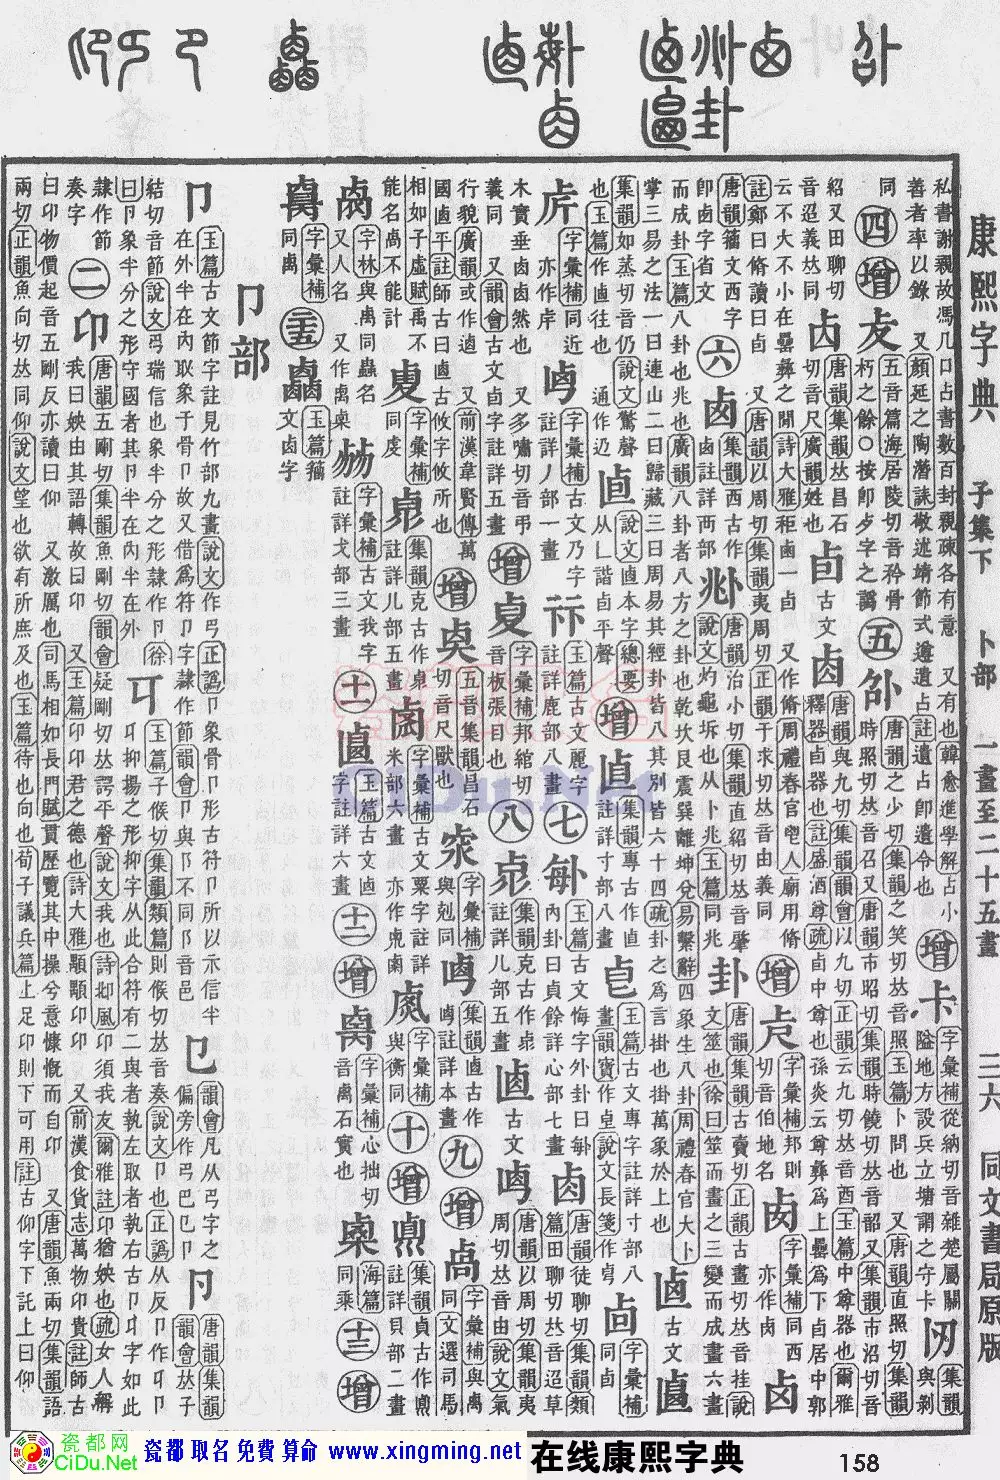 康熙字典 子集下 卜部 一畫至二十五畫 三六 同文書局原版
私書謝親故馮几口占書數百封親疎各有意 又有也韓愈進學解占小
善者率以錄 又顏延之陶潛誄敬述靖節式遵遺占註遺占卽遺令也
增 卡 字彙補從納切音雜楚屬關隘地方設兵立塘謂之守卡
同
四 增
五音篇海居陵切音矜骨朽之餘○按卽歺字之譌
五 卲 唐韻之少切集韻之笑切𠀤音照玉篇卜問也 又唐韻直照切集韻時照切𠀤音召又唐韻市昭切集韻時饒切𠀤音韶又集韻市沼切音紹又田聊切音迢義𠀤同
唐韻集韻𠀤昌石切音尺廣韻姓也
卣 古文 唐韻與九切集韻韻會以九切正韻云九切𠀤音酉玉篇中尊器也爾雅釋器卣器也註盛酒尊疏卣中尊也孫炎云尊彝爲上罍爲下卣居中郭云不大不小在罍彝之閒詩大雅秬鬯一卣 又作脩周禮春官鬯人廟用脩註鄭曰脩讀曰卣 又唐韻以周切集韻夷周切正韻于求切𠀤音由義同
增 字彙補邦則切音伯地名
字彙補同西 亦作卤
卤 唐韻籀文西字卽卤字省文
六 卤 集韻西古作卤註詳西部
唐韻治小切集韻直紹切𠀤音肇說文灼龜坼也从卜兆玉篇同兆
卦 唐韻集韻古賣切正韻古畫切𠀤音挂說文筮也徐曰筮而畫之三變而成畫六畫而成卦玉篇八卦也兆也廣韻八卦者八方之卦也乾坎艮震巽離坤兌易繫辭四象生八卦周禮春官大卜掌三易之法一曰連山二曰歸藏三曰周易其經卦皆八其別皆六十四疏卦之爲言掛也掛萬象於上也
古文 集韻如蒸切音仍說文驚聲也玉篇作卥往也 通作迺
說文卥本字總要从乚諧卣平聲
增 集韻專古作𠧗註詳寸部八畫
玉篇古文專字註詳寸部八畫韻寶作皂註說文長箋作𠧟
字彙補同卣
字彙補同近亦作虍
字彙補古文乃字註詳丿部一畫
玉篇古文麗字註詳鹿部八畫
七 玉篇古文悔字外卦曰𠧩內卦曰貞餘詳心部七畫
卥 唐韻徒聊切集韻類篇田聊切𠀤音迢草木實垂卥卥然也 又多嘯切音弔義同 又韻會古文卣字註詳五畫
增 字彙補邦綰切音板張目也
八 集韻克古作𠧳註詳儿部五畫
卥 古文 唐韻以周切集韻夷周切𠀤音由說文氣行貌廣韻或作逌 又前漢韋賢傳萬國卥平註師古曰卥古攸字攸所也
增 五音集韻昌石切音尺獸也
字彙補與剋同
集韻卥古作 註詳本畫
九 增 卨 字彙補與禼同文選司馬相如子虛賦禹不能名卨不能計
字彙補同虔
集韻克古作㔳註詳儿部五畫
字彙補古文粟字註詳米部六畫 亦作 㔽
字彙補與衡同
十 增 集韻貞古作鼑註詳貝部二畫
字林與禼同蟲名 又人名 又作禼 㮚
字彙補古文我字註詳戈部三畫
十一 玉篇古文卥字註詳六畫
十二 增 字彙補心拙切音禼石實也
海篇同乘
十三 增
字彙補同禼
二十五 玉篇籀文卤字
卩部
卩 玉篇古文節字註見竹部九畫說文作弓正譌卩象骨卩形古符卩所以示信半在外半在內取象于骨卩故又借爲符卩字隸作節韻會卩與阝不同阝音邑
㔾 韻會凡从弓字之偏旁作弓巳㔾卩
唐韻集韻韻會𠀤子結切音節說文弓瑞信也象半分之形隸作卩徐曰卩象半分之形守國者其卩半在內半在外
玉篇子候切集韻類篇則候切𠀤音奏說文卪也正譌从反卩作 卪抑揚之形抑字从此合符有二與者執左取者執右古卩 字如此隸作節奏字
二 卬 唐韻五剛切集韻魚剛切韻會疑剛切𠀤𧧀平聲說文我也詩邶風卬須我友爾雅註卬猶姎也疏女人稱我曰姎由其語轉故曰卬 又玉篇卬卬君之德也詩大雅顒顒卬卬 又前漢食貨志萬物卬貴註師古曰卬物價起音五剛反亦讀曰仰 又激厲也司馬相如長門賦貫歷覽其中操兮意慷慨而自卬 又唐韻魚兩切集韻語兩切正韻魚向切𠀤同仰說文望也欲有所庶及也玉篇待也荀子議兵篇上足卬則下可用註古仰字下託上曰仰
CiDu.Net
瓷都网
CiDu.Net
瓷都 取名 免費 算命 www.xingming.net
在线康熙字典
158